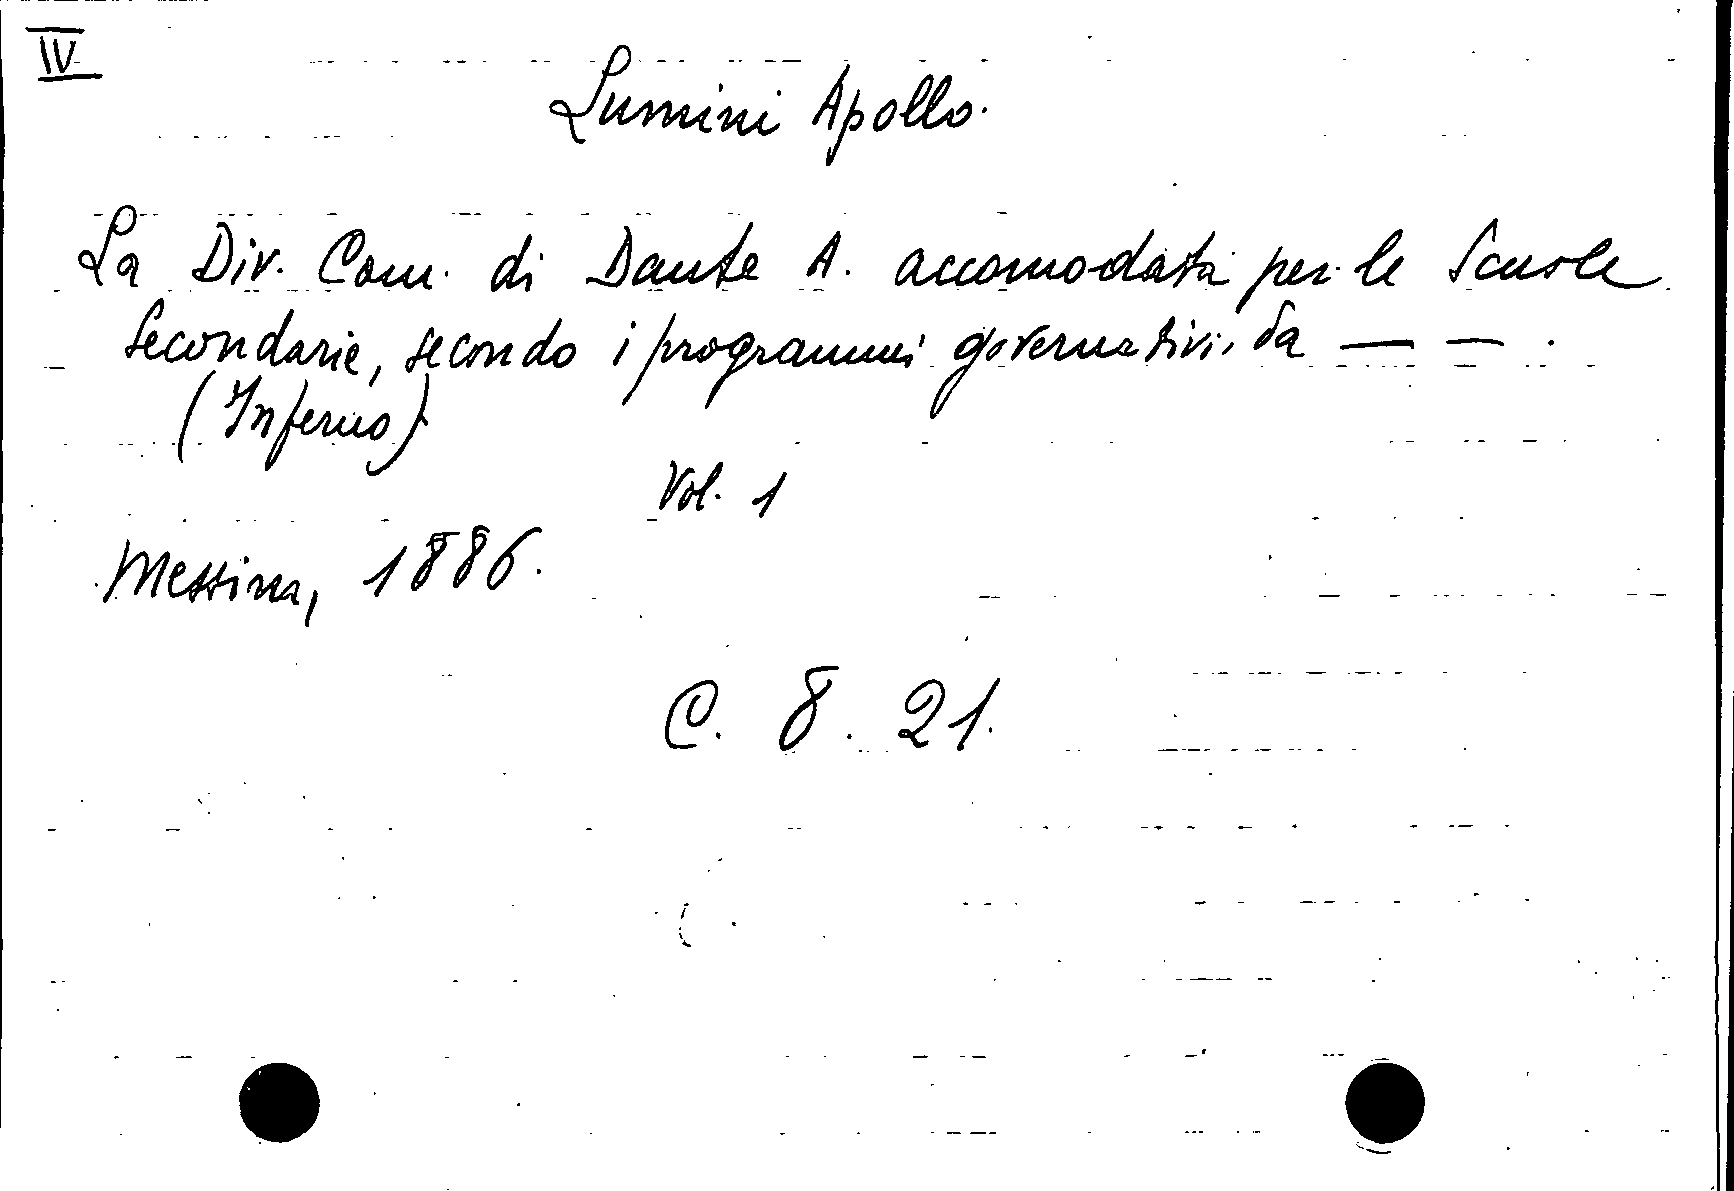 IV
Lumini Apollo.
La Div. Com. di Dante A. accomodata per le Scuole
Secondarie, secondo i programmi governativi, da — — .
(Inferno)
Vol. 1
Messina, 1886.
C. 8. 21.